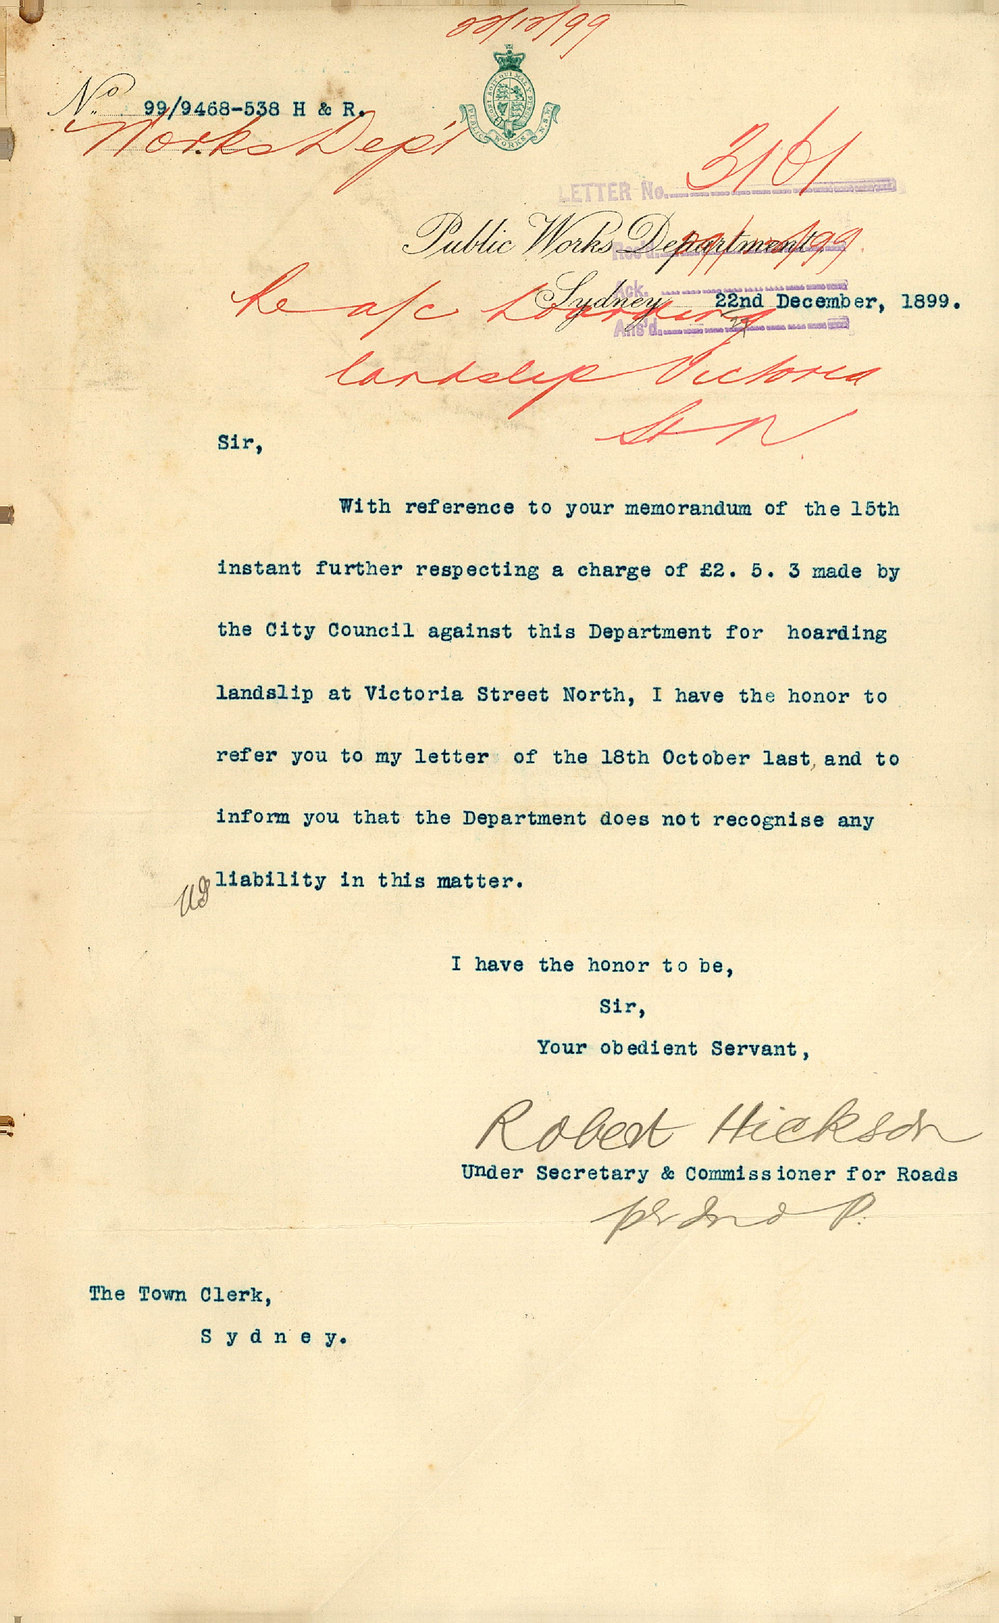 22/12/99
No. 99/9468-538 H & R.
Works Dep't
PUBLIC WORKS N.S.W.
LETTER No. 3161
Public Works Department,
Rec'd. 99
Ack.
Sydney 22nd December, 1899.
Ans'd.
Re a/c hoarding
landslip Victoria
St N
Sir,
With reference to your memorandum of the 15th
instant further respecting a charge of £2. 5. 3 made by
the City Council against this Department for hoarding
landslip at Victoria Street North, I have the honor to
refer you to my letter of the 18th October last, and to
inform you that the Department does not recognise any
liability in this matter.
I have the honor to be,
Sir,
Your obedient Servant,
Robert Hickson
Under Secretary & Commissioner for Roads
per
The Town Clerk,
Sydney.